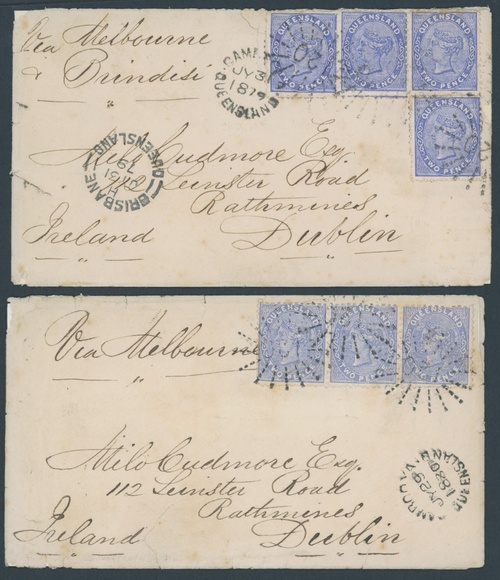 Via Melbourne
& Brindisi
"
QUEENSLAND
TWO PENCE
QUEENSLAND
TWO PENCE
QUEENSLAND
TWO PENCE
QUEENSLAND
TWO PENCE
JY 31
1879
QUEENSLAND
BRISBANE
QUEENSLAND
31
79
Milo Cudmore Esq.
112 Leinster Road
Rathmines
Ireland
Dublin
"
Via Melbourne
"
QUEENSLAND
TWO PENCE
QUEENSLAND
TWO PENCE
QUEENSLAND
TWO PENCE
JY 29
1880
Milo Cudmore Esq.
112 Leinster Road
Rathmines
Ireland
Dublin
"